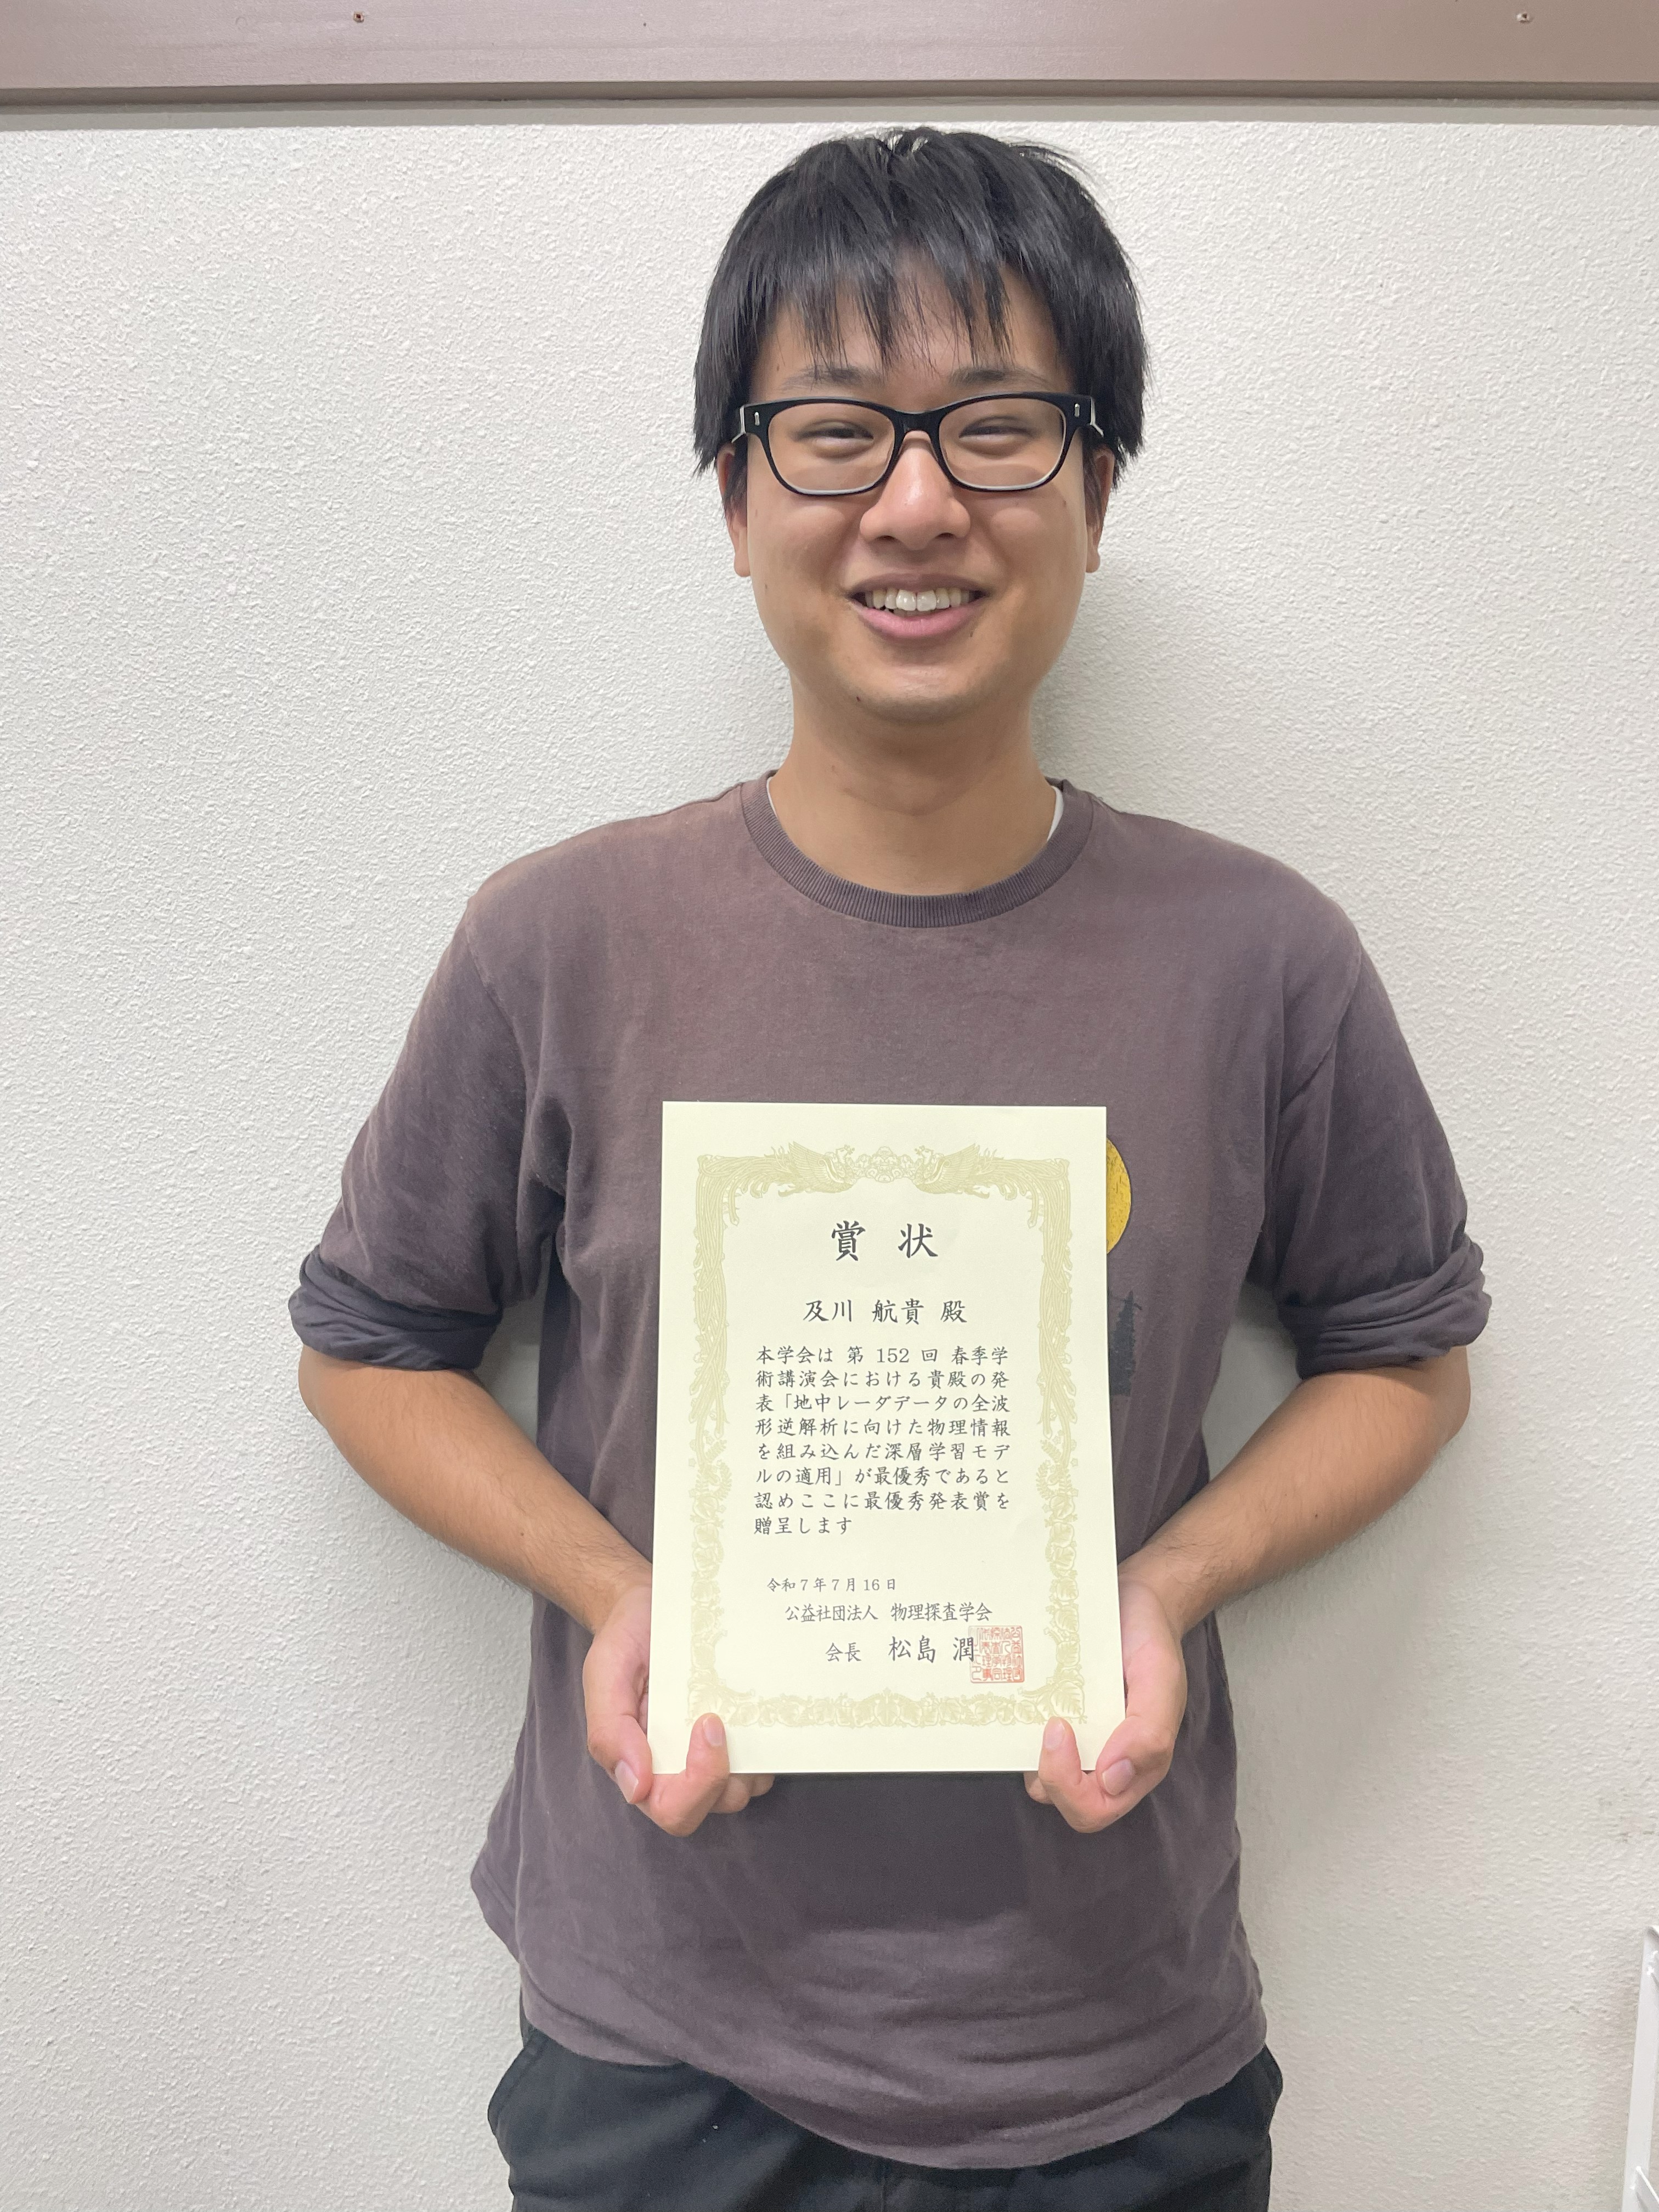 賞 状
及川 航貴 殿
本学会は 第 152 回 春季学
術講演会における貴殿の発
表「地中レーダデータの全波
形逆解析に向けた物理情報
を組み込んだ深層学習モデ
ルの適用」が最優秀であると
認めここに最優秀発表賞を
贈呈します
令和7年7月16日
公益社団法人 物理探査学会
会長 松島 潤